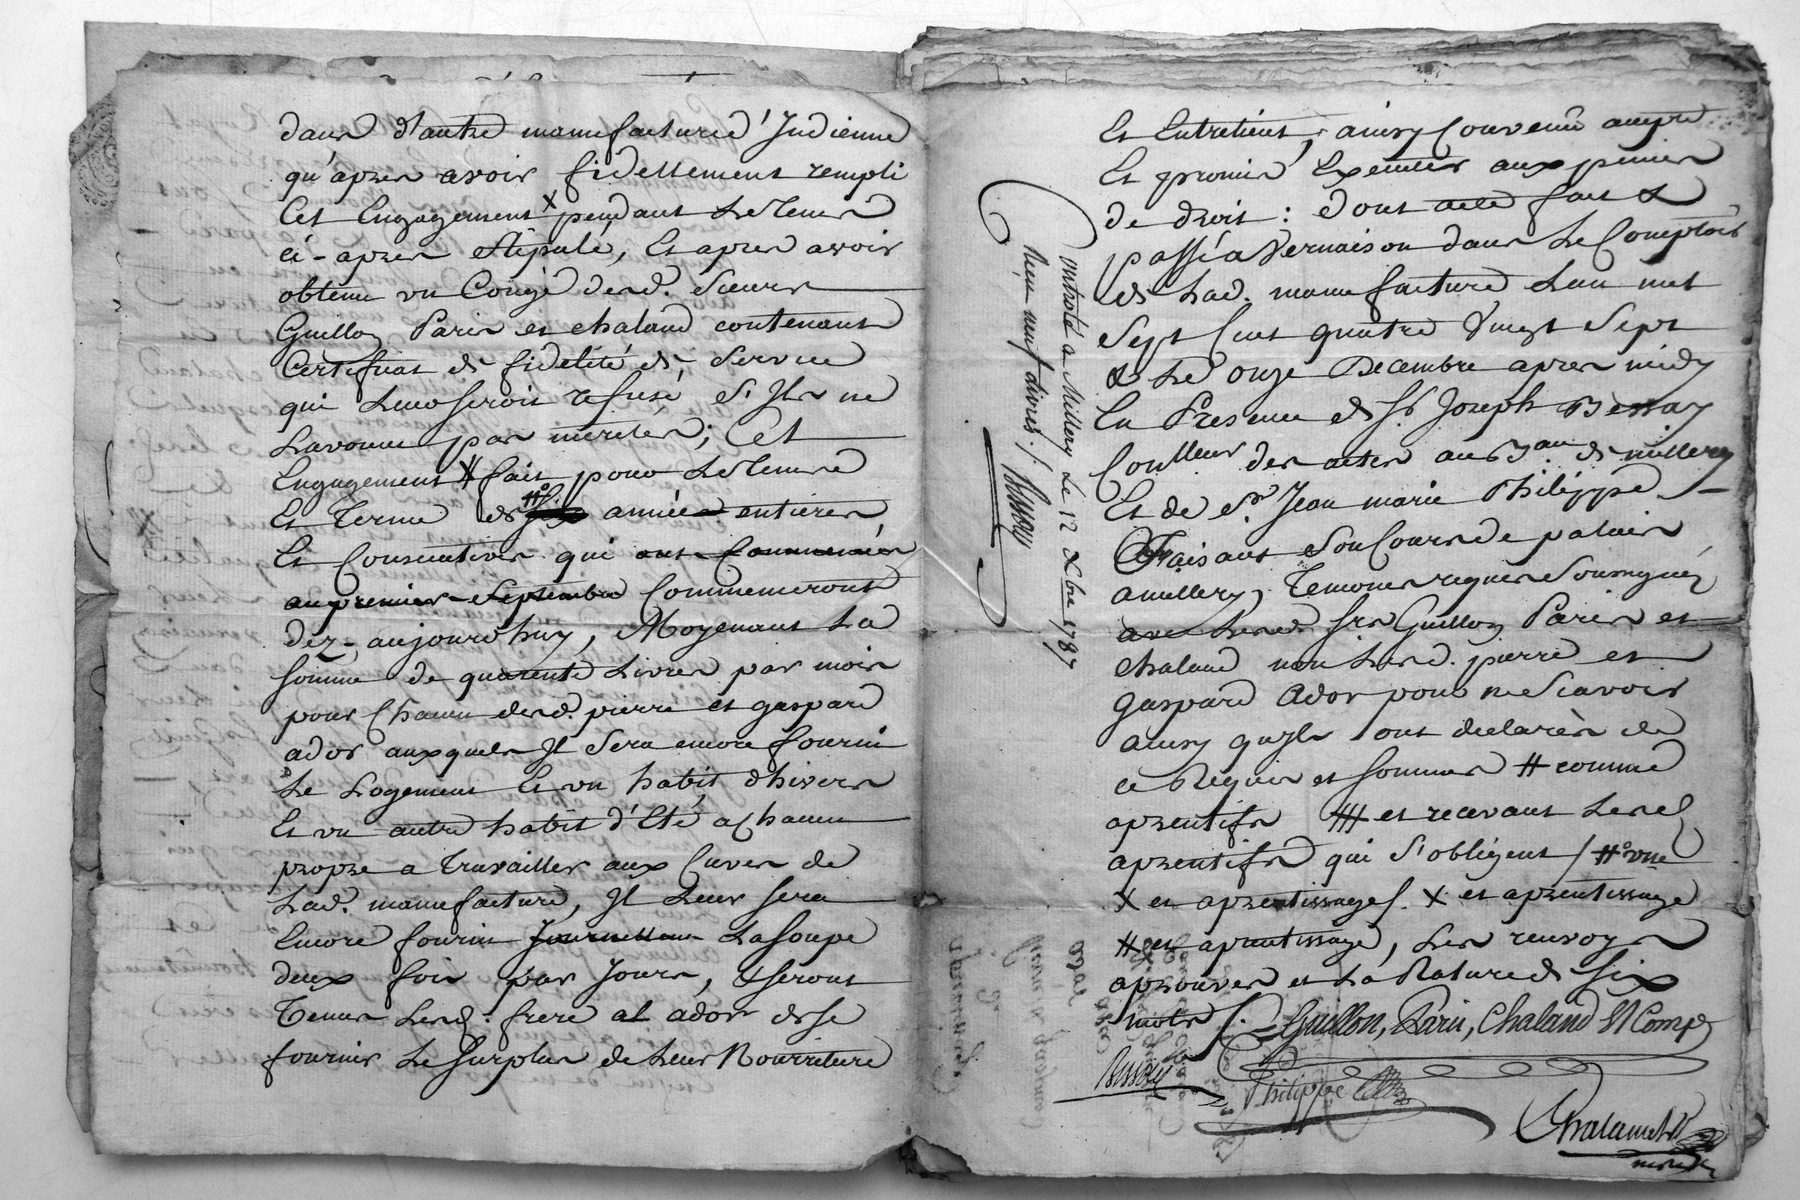 dans d'autre manufacture d'Indienne
qu'apres avoir fidellement rempli
Cet Engagement X pendant Le Tems
ci-apres stipulé, Et apres avoir
obtenu un Congé desd. Sieurs
Guillon Paris et chaland contenant
Certificat de fidelité et service
qui Leur seroit refusé s'Ils ne
L'avoient pas merité; Cet
Engagement # fait pour Le Tems
Et Terme de #° année entieres
Et Consecutives qui ont Commencées
au premier Septembre Commenceront
dez-aujourdhuy, Moyenant La
somme de quarente Livres par mois
pour Chacun desd. pierre et gaspard
ador auxquels Il sera encore fourni
Le Logement Et un habit d'hivers
Et un autre habit d'Eté a Chacun
propre a Travailler aux Cuves de
Lad. manufacture, Il Leur sera
Encore fourni Journellem La soupe
deux fois par Jours, & seront
Tenus Lesd. frere ador de se
fournir Le surplus de Leur Nourriture
Et Entretient, ainsy Convenu
Et promis Executer aux peines
de droit: dont acte fait &
passé a Vernaison dans Le Comptoir
de Lad. manufacture L'an mil
Sept Cent quatre Vingt Sept
& Le onze Decembre apres midy
En Presence de Sr. Joseph Bessay
Conlleur des actes au de millery
Et de Sr. Jean marie Philippe
Faisant son Cours de
a millery, Temoins requis soussignéz
avec Lesd. Srs Guillon Paris et
chaland non Lesd. pierre et
gaspard Ador pour ne sçavoir
ainsy qu'ils ont declarés de
ce Requis et sommés # comme
aprentifs ### et recevant Lesd
aprentifs qui s'obligent / #° une
X et aprentissages. X et aprentissage
# et aprentissage, Les renvoys
aprouvés et La Rature de six
mots /. Guillon, Paris, Chaland & Comp
Bessay
Philippe
Chalamel
Controlé a Millery Le 12 Xbre 1787
Recu neuf Livres /. Bessay